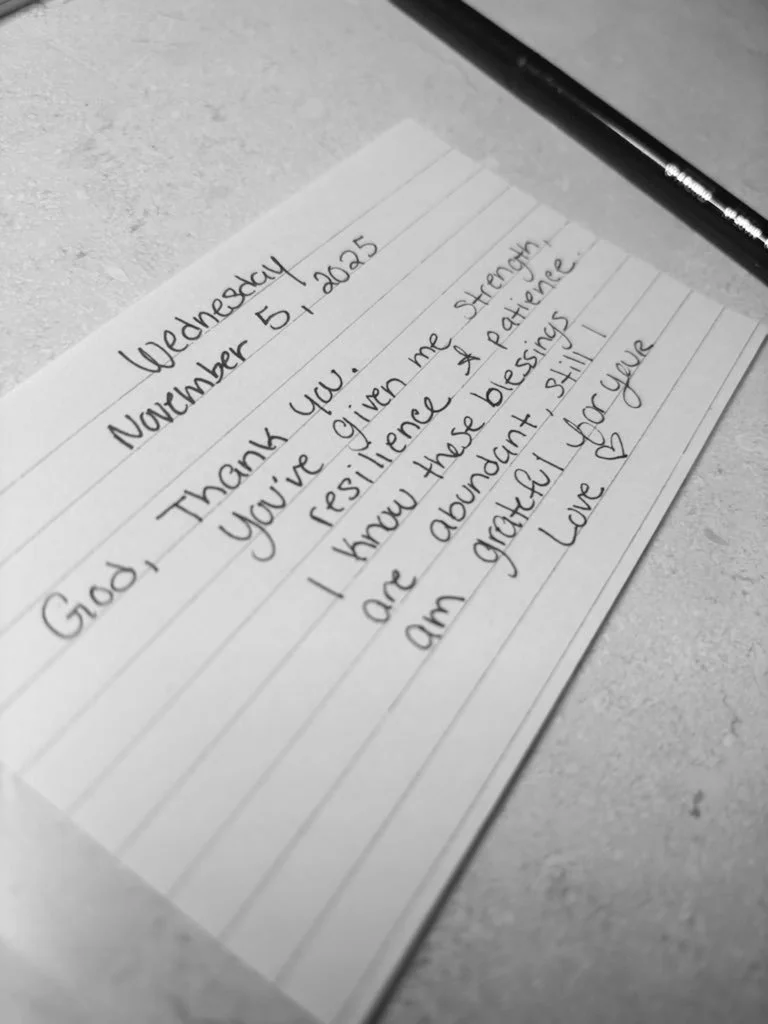 Wednesday
November 5, 2025
God, Thank you.
You've given me strength,
resilience & patience.
I know these blessings
are abundant, still I
am grateful for your
Love ♡